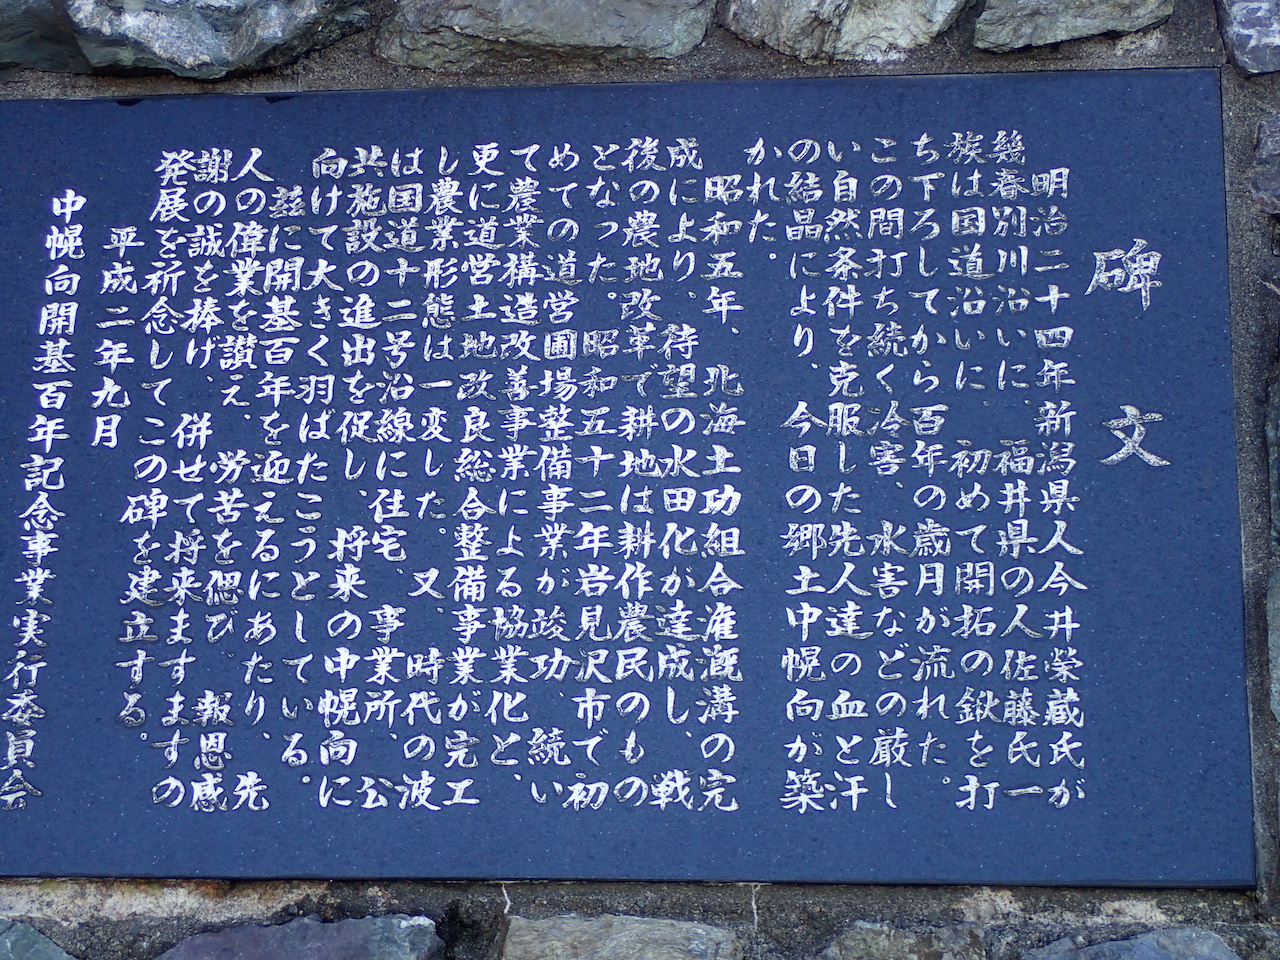 碑文
明治二十四年、新潟県人今井榮蔵氏が
幾春別川沿いに、福井県の人佐藤氏一
族は国道沿いに、初めて開拓の鍬を打
ち下ろしてから百年の歳月が流れた。
この間打ち続く冷害、水害などの厳し
い自然条件を克服した先人達の血と汗
の結晶により、今日の郷土中幌向が築
かれた。
昭和五年、北海土功組合潅漑溝の完
成により、待望の水田化が達成し、戦
後の農地改革で耕地は耕作農民のもの
となった。昭和五十二年岩見沢市で初
めての道営圃場整備事業が竣功、続い
て農業構造改善事業による協業化と、
更に道営土地改良総合整備事業が完工
し農業形態は一変した。又、時代の波
は国道十二号沿線に住宅、事業所、公
共施設の進出を促し、将来の中幌向に
向けて大きく羽ばたこうとしている。
茲に開基百年を迎えるにあたり、先
人の偉業を讃え、労苦を偲び、報恩感
謝の誠を捧げ、併せて将来ますますの
発展を祈念してこの碑を建立する。
平成二年九月
中幌向開基百年記念事業実行委員会